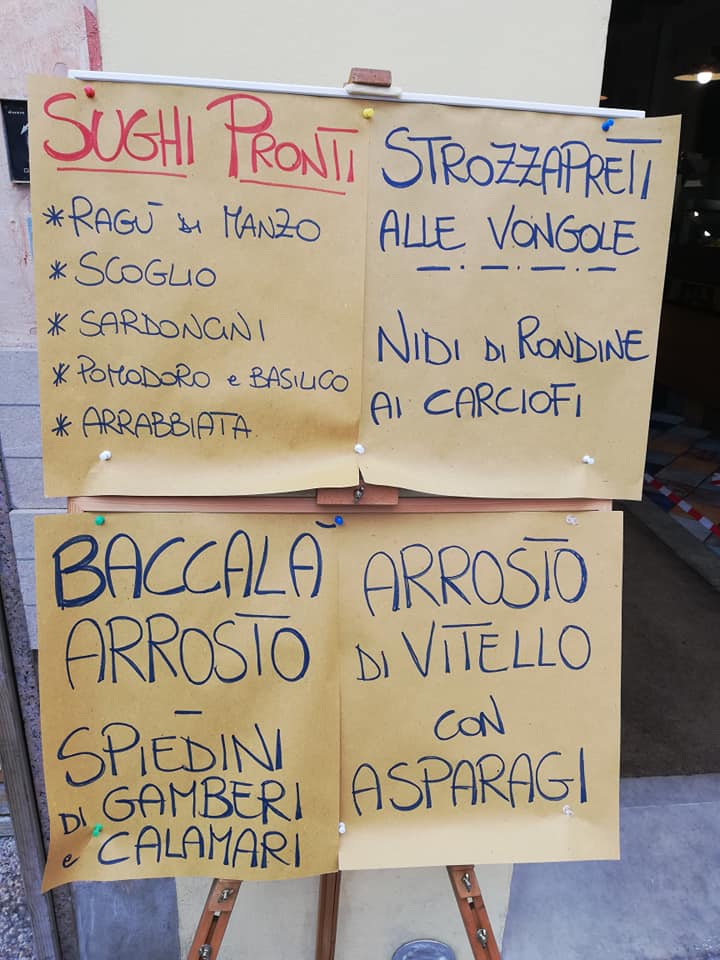 SUGHI PRONTI
* RAGÙ di MANZO
* SCOGLIO
* SARDONCINI
* POMODORO e BASILICO
* ARRABBIATA
STROZZAPRETI
ALLE VONGOLE
NIDI DI RONDINE
AI CARCIOFI
BACCALÀ
ARROSTO
-
SPIEDINI
DI GAMBERI
e CALAMARI
ARROSTO
DI VITELLO
CON
ASPARAGI